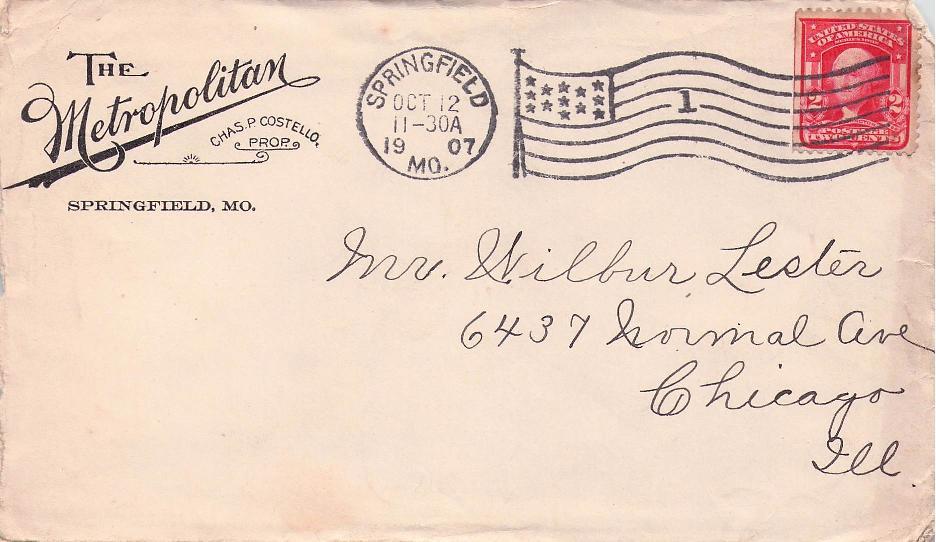 THE
Metropolitan
CHAS. P. COSTELLO.
PROP.
SPRINGFIELD, MO.
SPRINGFIELD
OCT 12
11-30A
19 07
MO.
1
UNITED STATES
OF AMERICA
2 2
POSTAGE
TWO CENTS
Mr. Wilbur Lester
6437 Normal Ave
Chicago
Ill